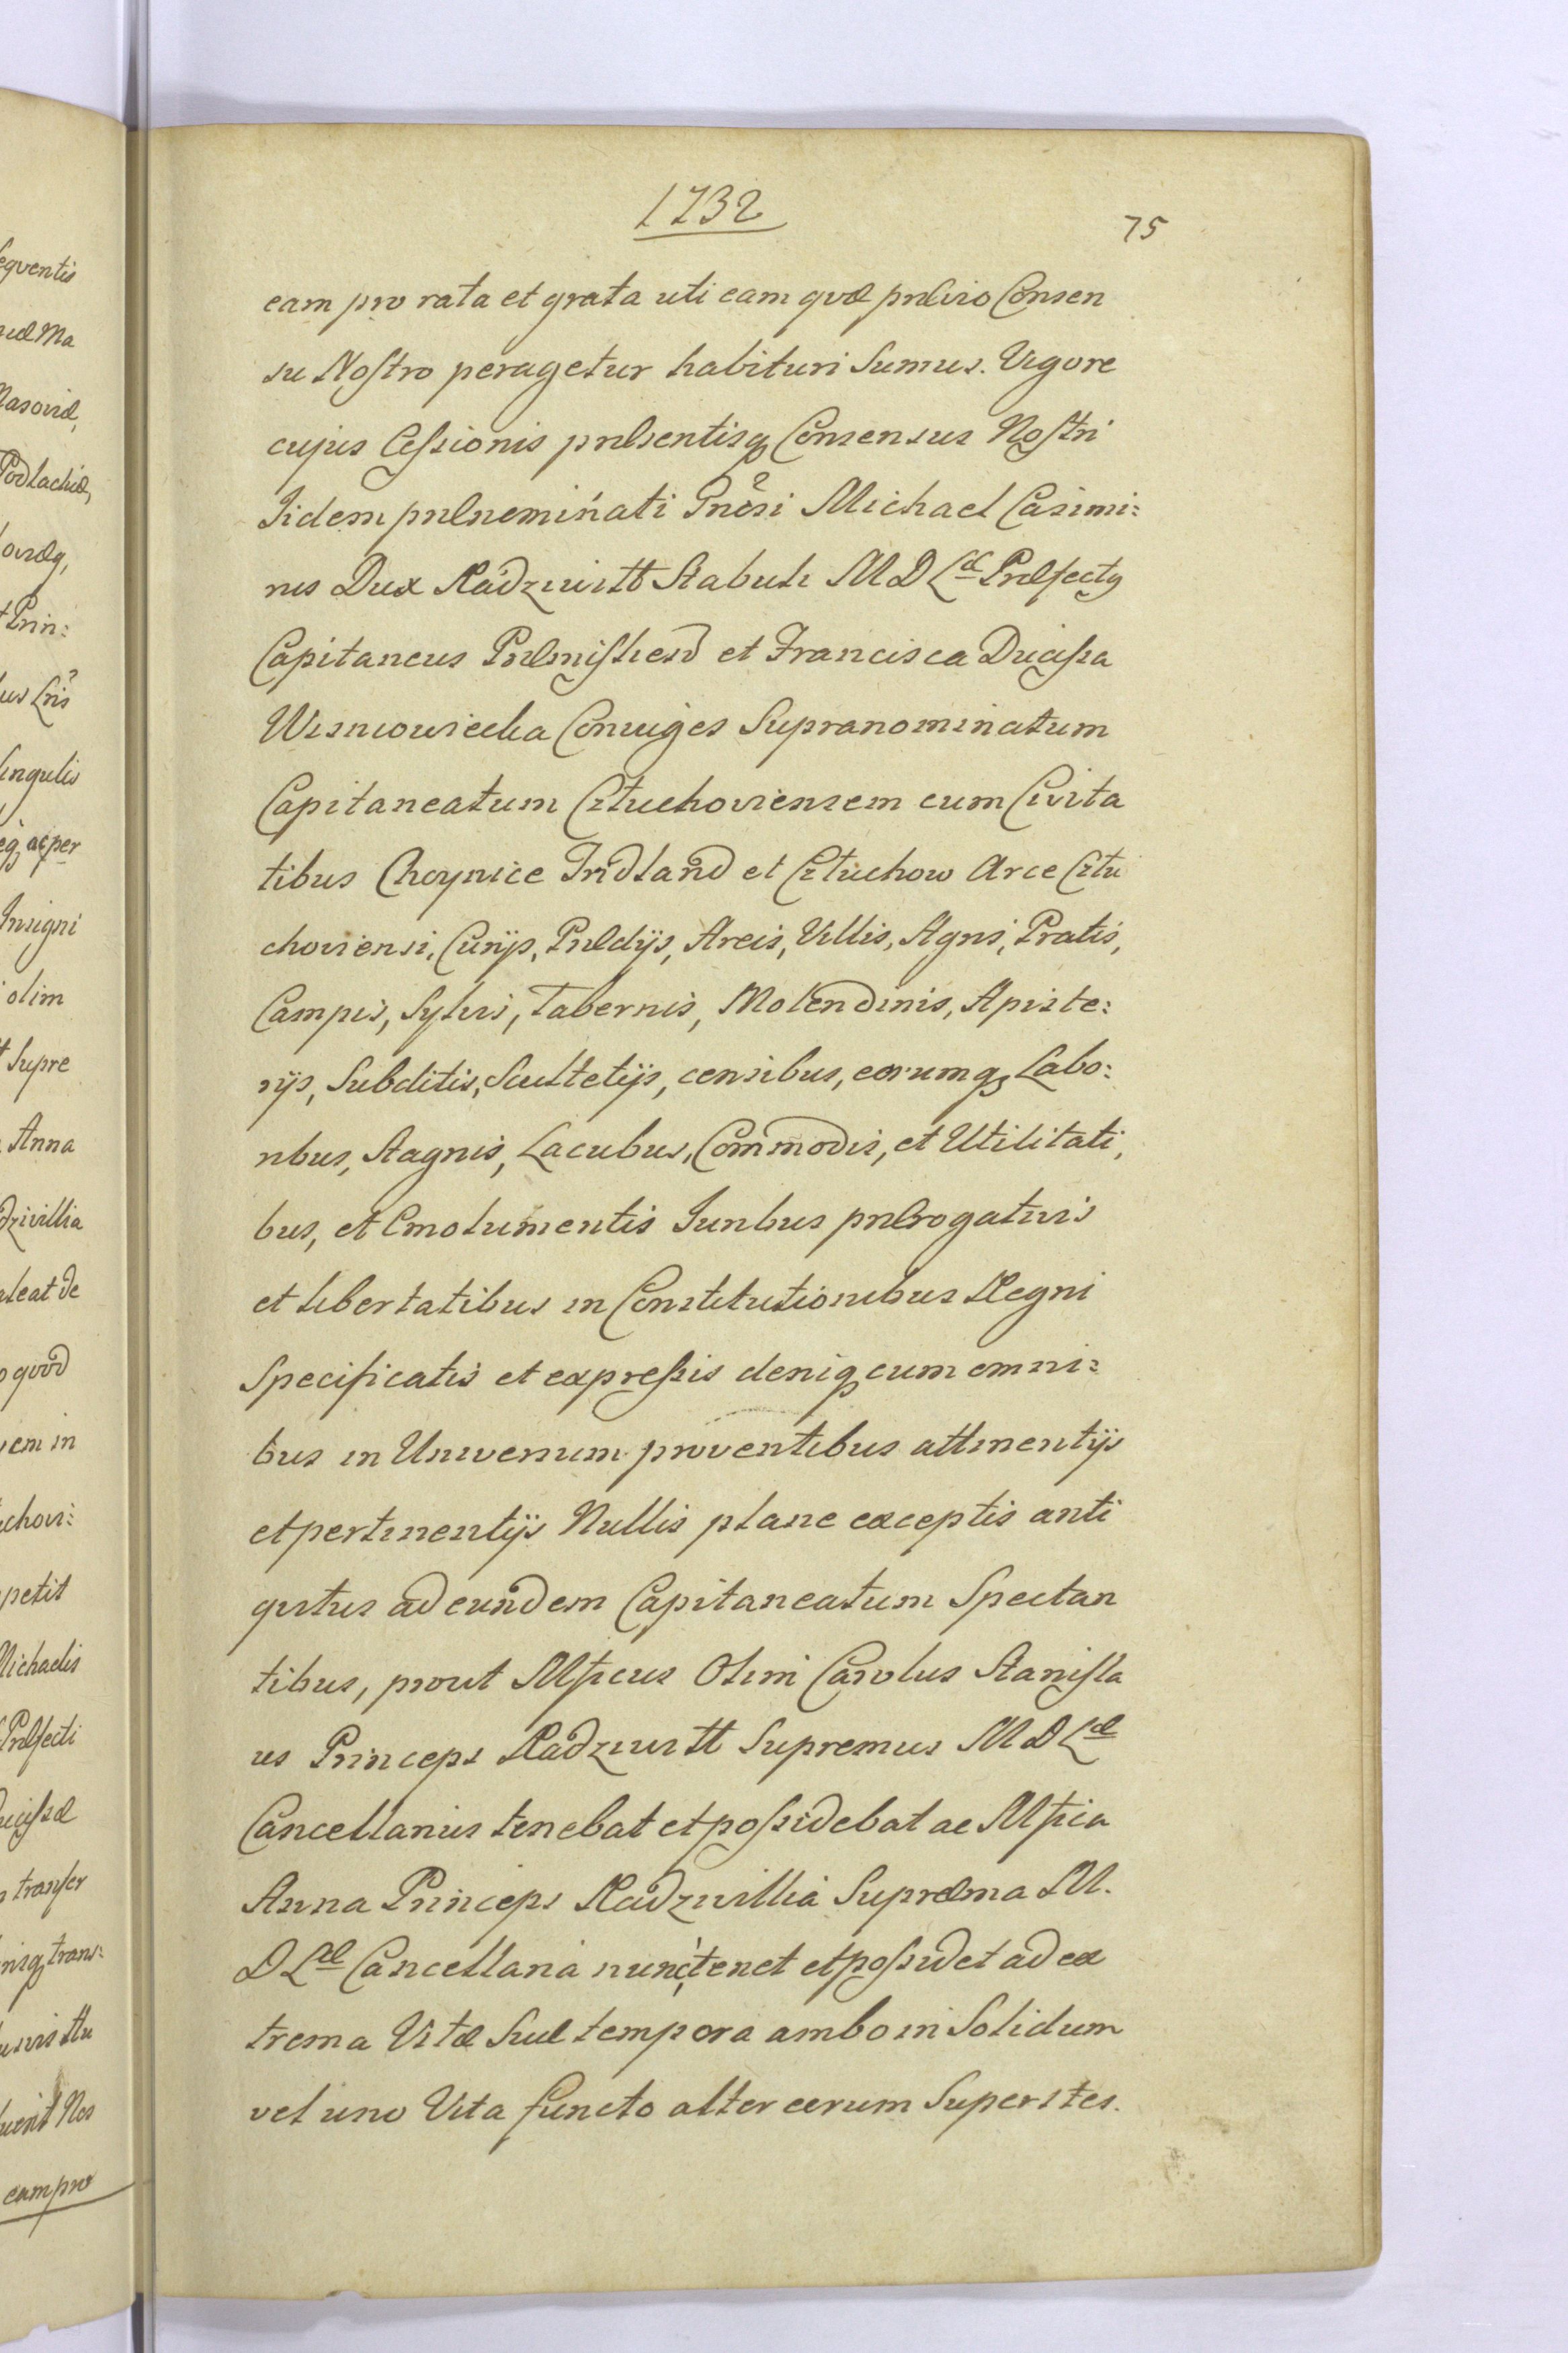 1732
75
eam pro rata et grata uti eam quæ prævio Consen
su Nostro peragetur habituri Sumus. Vigore
cujus Cessionis præsentisq Consensus Nostri
Iidem prænominati Gnosi Michael Casimi:
rus Dux Radziwiłł Stabuli M D Læ Præfectus
Capitaneus Præmisliens et Francisca Ducissa
Wisniowiecka Coniuges Supranominatum
Capitaneatum Człuchoviensem cum Civita
tibus Choynice Fridland et Człuchow Arce Człu
choviensi, Curijs, Prædijs, Areis, Villis, Agris, Pratis,
Campis, Sylvis, Tabernis, Molendinis, Apiste:
rijs, Subditis, Scultetijs, censibus, eorumq Labo:
ribus, Stagnis, Lacubus, Commodis, et Utilitati,
bus, et Emolumentis Juribus prærogativis
et libertatibus in Constitutionibus Regni
Specificatis et expressis deniq cum omni:
bus in Universum proventibus attinentijs
et pertinentijs Nullis plane exceptis anti
quitus ad eundem Capitaneatum Spectan
tibus, prout Mficus Olim Carolus Stanisla
us Princeps Radziwiłł Supremus M D Læ
Cancellarius tenebat et possidebat ac Mfica
Anna Princeps Radzivillia Supræma M.
D Læ Cancellaria nunc tenet et possidet ad ex
trema Vitæ Suæ tempora ambo in Solidum
vel uno Vita functo alter eorum Superstes.
equentis
Podlachiæ,
t Prin:
ingulis
Insigni
olim
t Supre
Anna
dzivillia
aleat de
quod
em in
uchovi:
petit
Michaelis
Præfecti
ucissæ
transfer
trans:
Nos
eam pro